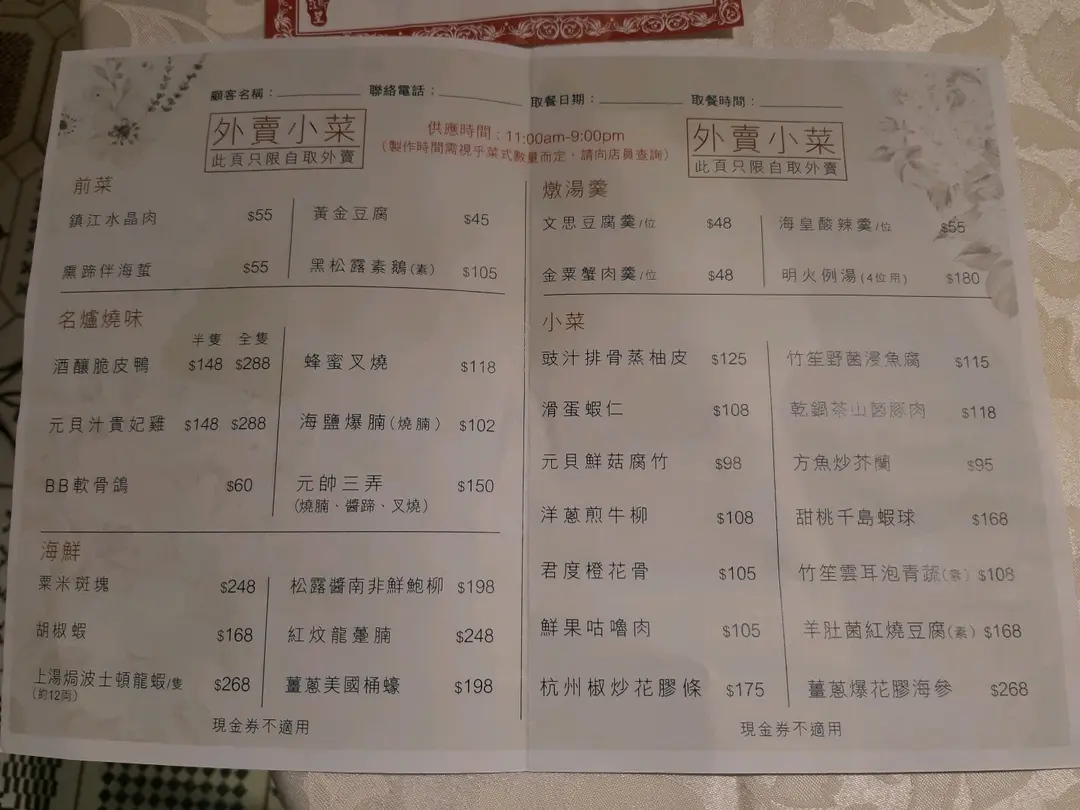 顧客名稱：
聯絡電話：
取餐日期：
取餐時間：
外賣小菜
此頁只限自取外賣
供應時間：11:00am-9:00pm
（製作時間需視乎菜式數量而定，請向店員查詢）
外賣小菜
此頁只限自取外賣
前菜
鎮江水晶肉 $55
黃金豆腐 $45
熏蹄伴海蜇 $55
黑松露素鵝(素) $105
名爐燒味
半隻 全隻
酒釀脆皮鴨 $148 $288
蜂蜜叉燒 $118
元貝汁貴妃雞 $148 $288
海鹽爆腩(燒腩) $102
BB軟骨鴿 $60
元帥三弄 $150
(燒腩、醬蹄、叉燒)
海鮮
粟米斑塊 $248
松露醬南非鮮鮑柳 $198
胡椒蝦 $168
紅炆龍躉腩 $248
上湯焗波士頓龍蝦/隻 $268
(約12両)
薑蔥美國桶蠔 $198
現金券不適用
燉湯羹
文思豆腐羹/位 $48
海皇酸辣羹/位 $55
金粟蟹肉羹/位 $48
明火例湯(4位用) $180
小菜
豉汁排骨蒸柚皮 $125
竹笙野菌浸魚腐 $115
滑蛋蝦仁 $108
乾鍋茶山菌豚肉 $118
元貝鮮菇腐竹 $98
方魚炒芥蘭 $95
洋蔥煎牛柳 $108
甜桃千島蝦球 $168
君度橙花骨 $105
竹笙雲耳泡青蔬(素) $108
鮮果咕嚕肉 $105
羊肚菌紅燒豆腐(素) $168
杭州椒炒花膠條 $175
薑蔥爆花膠海參 $268
現金券不適用